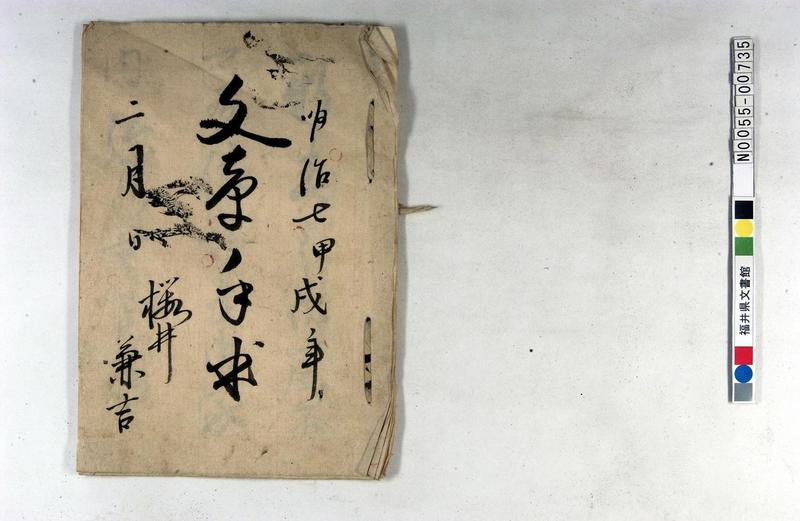 明治七甲戌年
文章手本
二月日
桜井
兼吉
N0055-00735
福井県文書館